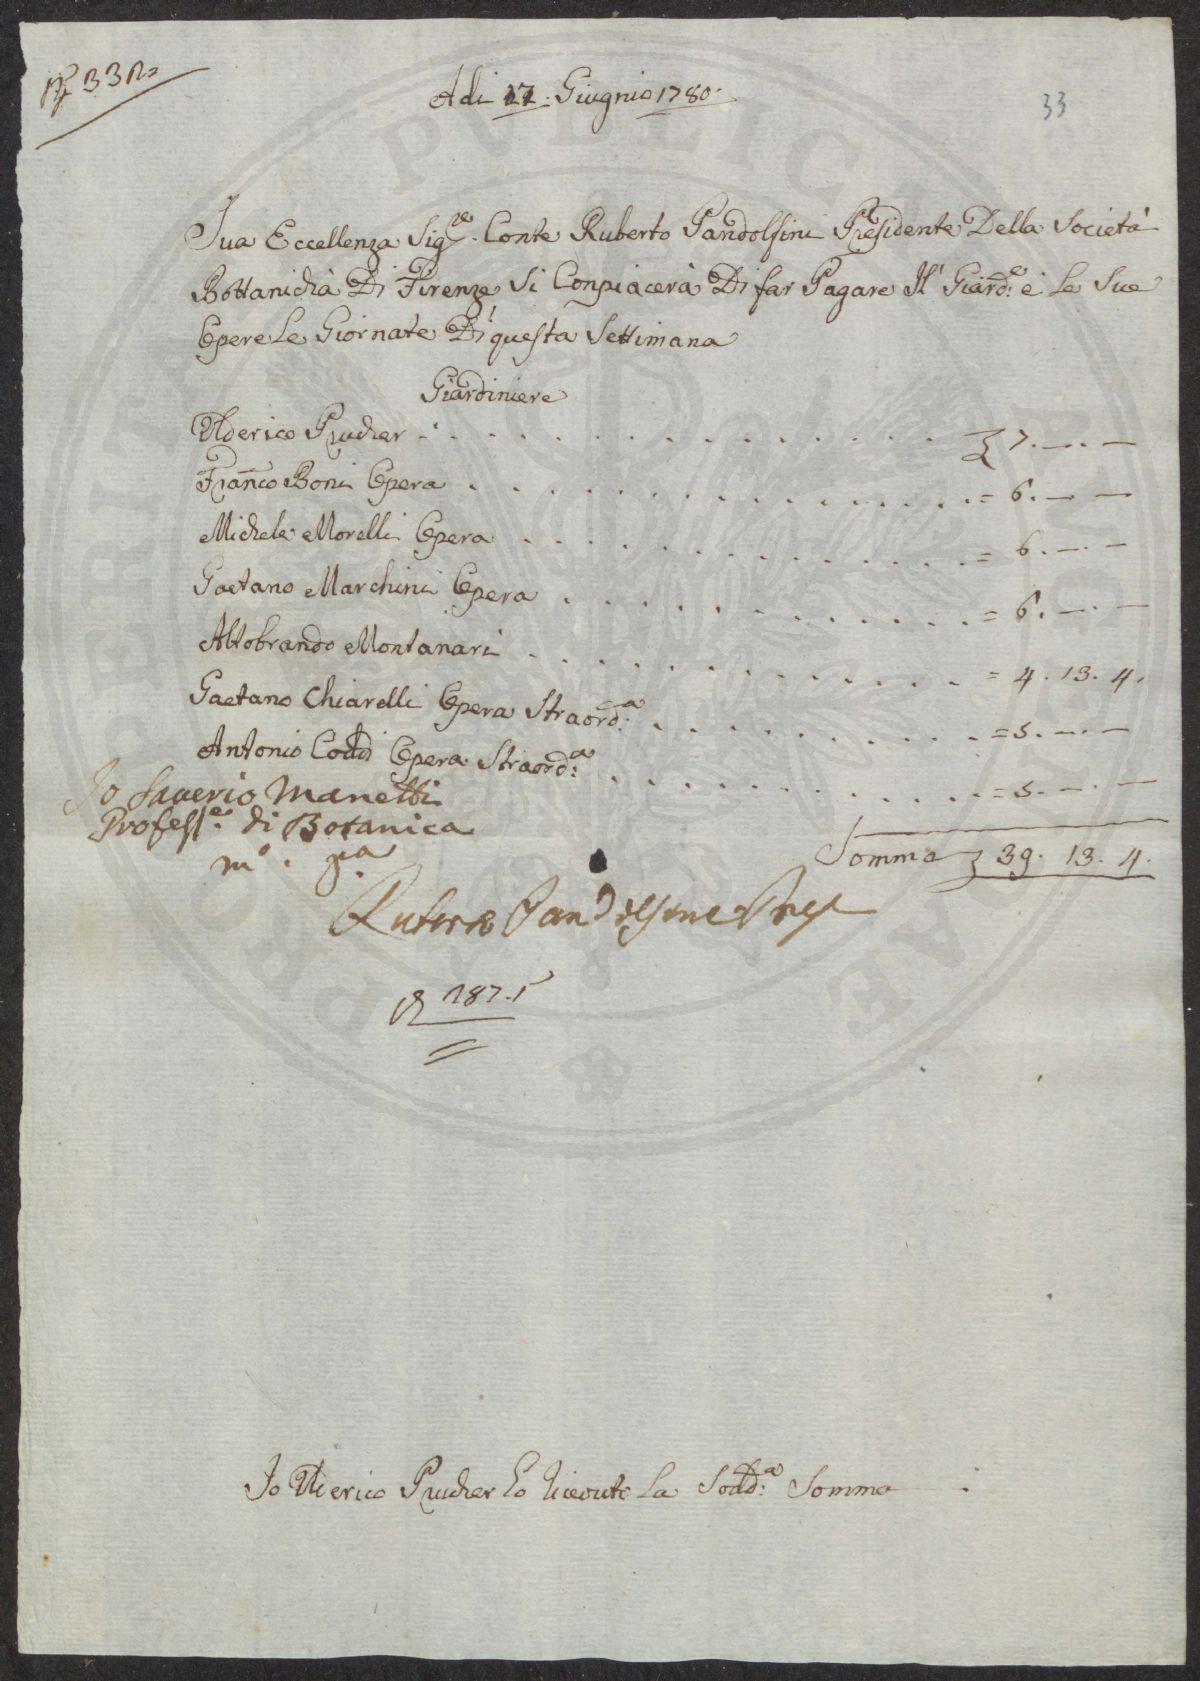 N° 332
Adi 17: Giugnio 1780.
33
Sua Eccellenza Sig.re Conte Ruberto Pandolfini Presidente Della Società
Bottanichà Di Firenze Si Conpiacerà Di far Pagare Il Giard.e e Le Sue
Opere Le Giornate Di questa Settimana
Giardiniere
Ulderico Prucher . . . . . . . . . . £ 7. — . —
Franco Boni Opera . . . . . . . . . . = 6. — . —
Michele Morelli Opera . . . . . . . . . . = 6. — . —
Gaetano Marchini Opera . . . . . . . . . . = 6. — . —
Altobrando Montanari . . . . . . . . . . = 4. 13. 4.
Gaetano Chiarelli Opera Straord:a . . . . . . . . . . = 5. — . —
Antonio Coddi Opera Straord:a . . . . . . . . . . = 5. — . —
Io Saverio Manetti
Profess.e di Botanica
m.o p.a
Somma £ 39. 13. 4.
Ruberto Pandolfini Pres
187.
Io Ulderico Prucher ho riceuto La Sodd:a Somma